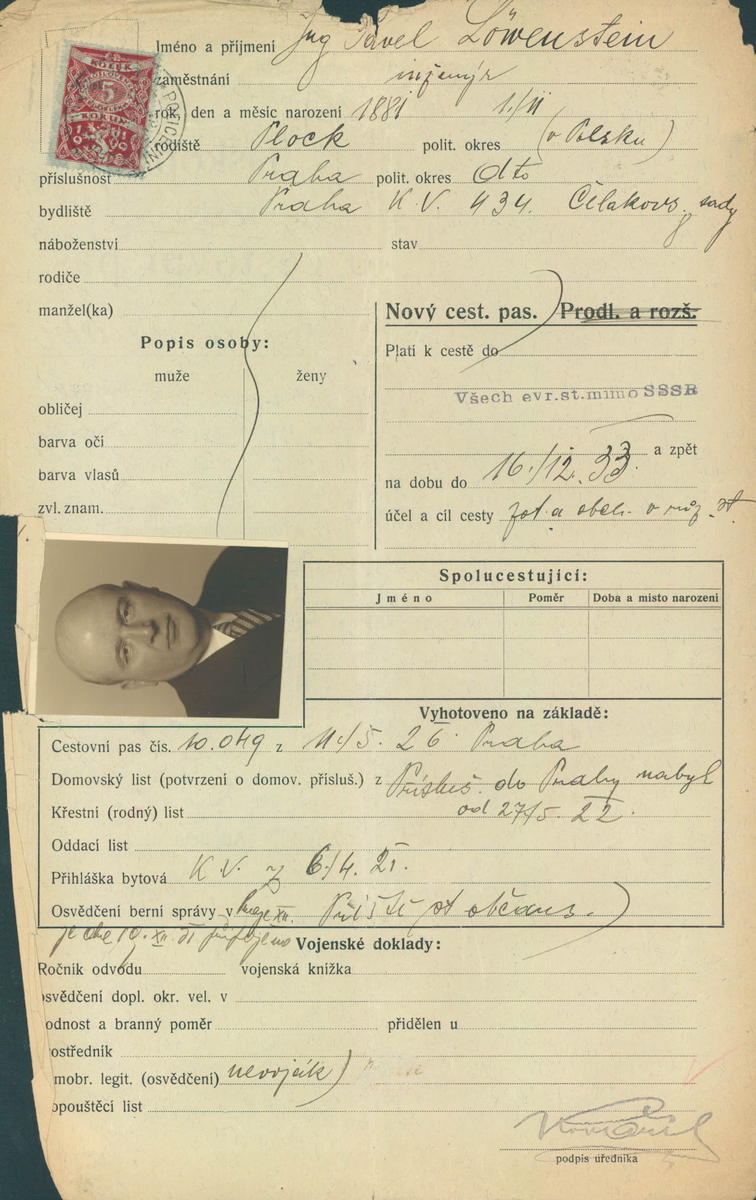 Jméno a příjmení Ing Pavel Löwenstein
zaměstnání inženýr
rok, den a měsíc narození 1881 1./II
rodiště Plock polit. okres (v Polsku)
příslušnost Praha polit. okres dto
bydliště Praha K.V. 434. Čelakovs. sady
náboženství stav
rodiče
manžel(ka)
Nový cest. pas. Prodl. a rozš.
Platí k cestě do
Všech evr.st.mimo SSSR
a zpět
na dobu do 16./12. 33.
účel a cíl cesty žot. a obch. v růz. st
Popis osoby:
muže ženy
obličej
barva očí
barva vlasů
zvl. znam.
KOLEK
5
KORUN
Spolucestující:
Jméno Poměr Doba a místo narození
Vyhotoveno na základě:
Cestovní pas čís. 10.049 z 11./5. 26. Praha
Domovský list (potvrzení o domov. přísluš.) z Přísluš. do Prahy nabyl
Křestní (rodný) list od 27/5. 22.
Oddací list
Přihláška bytová K.V. z 6/4. 21.
Osvědčení berní správy v Praze XII. st občans.)
je dne XII. připojeno
Vojenské doklady:
Ročník odvodu vojenská knížka
osvědčení dopl. okr. vel. v
odnost a branný poměr přidělen u
ostředník
mobr. legit. (osvědčení) nevoják)
opouštěcí list
podpis úředníka